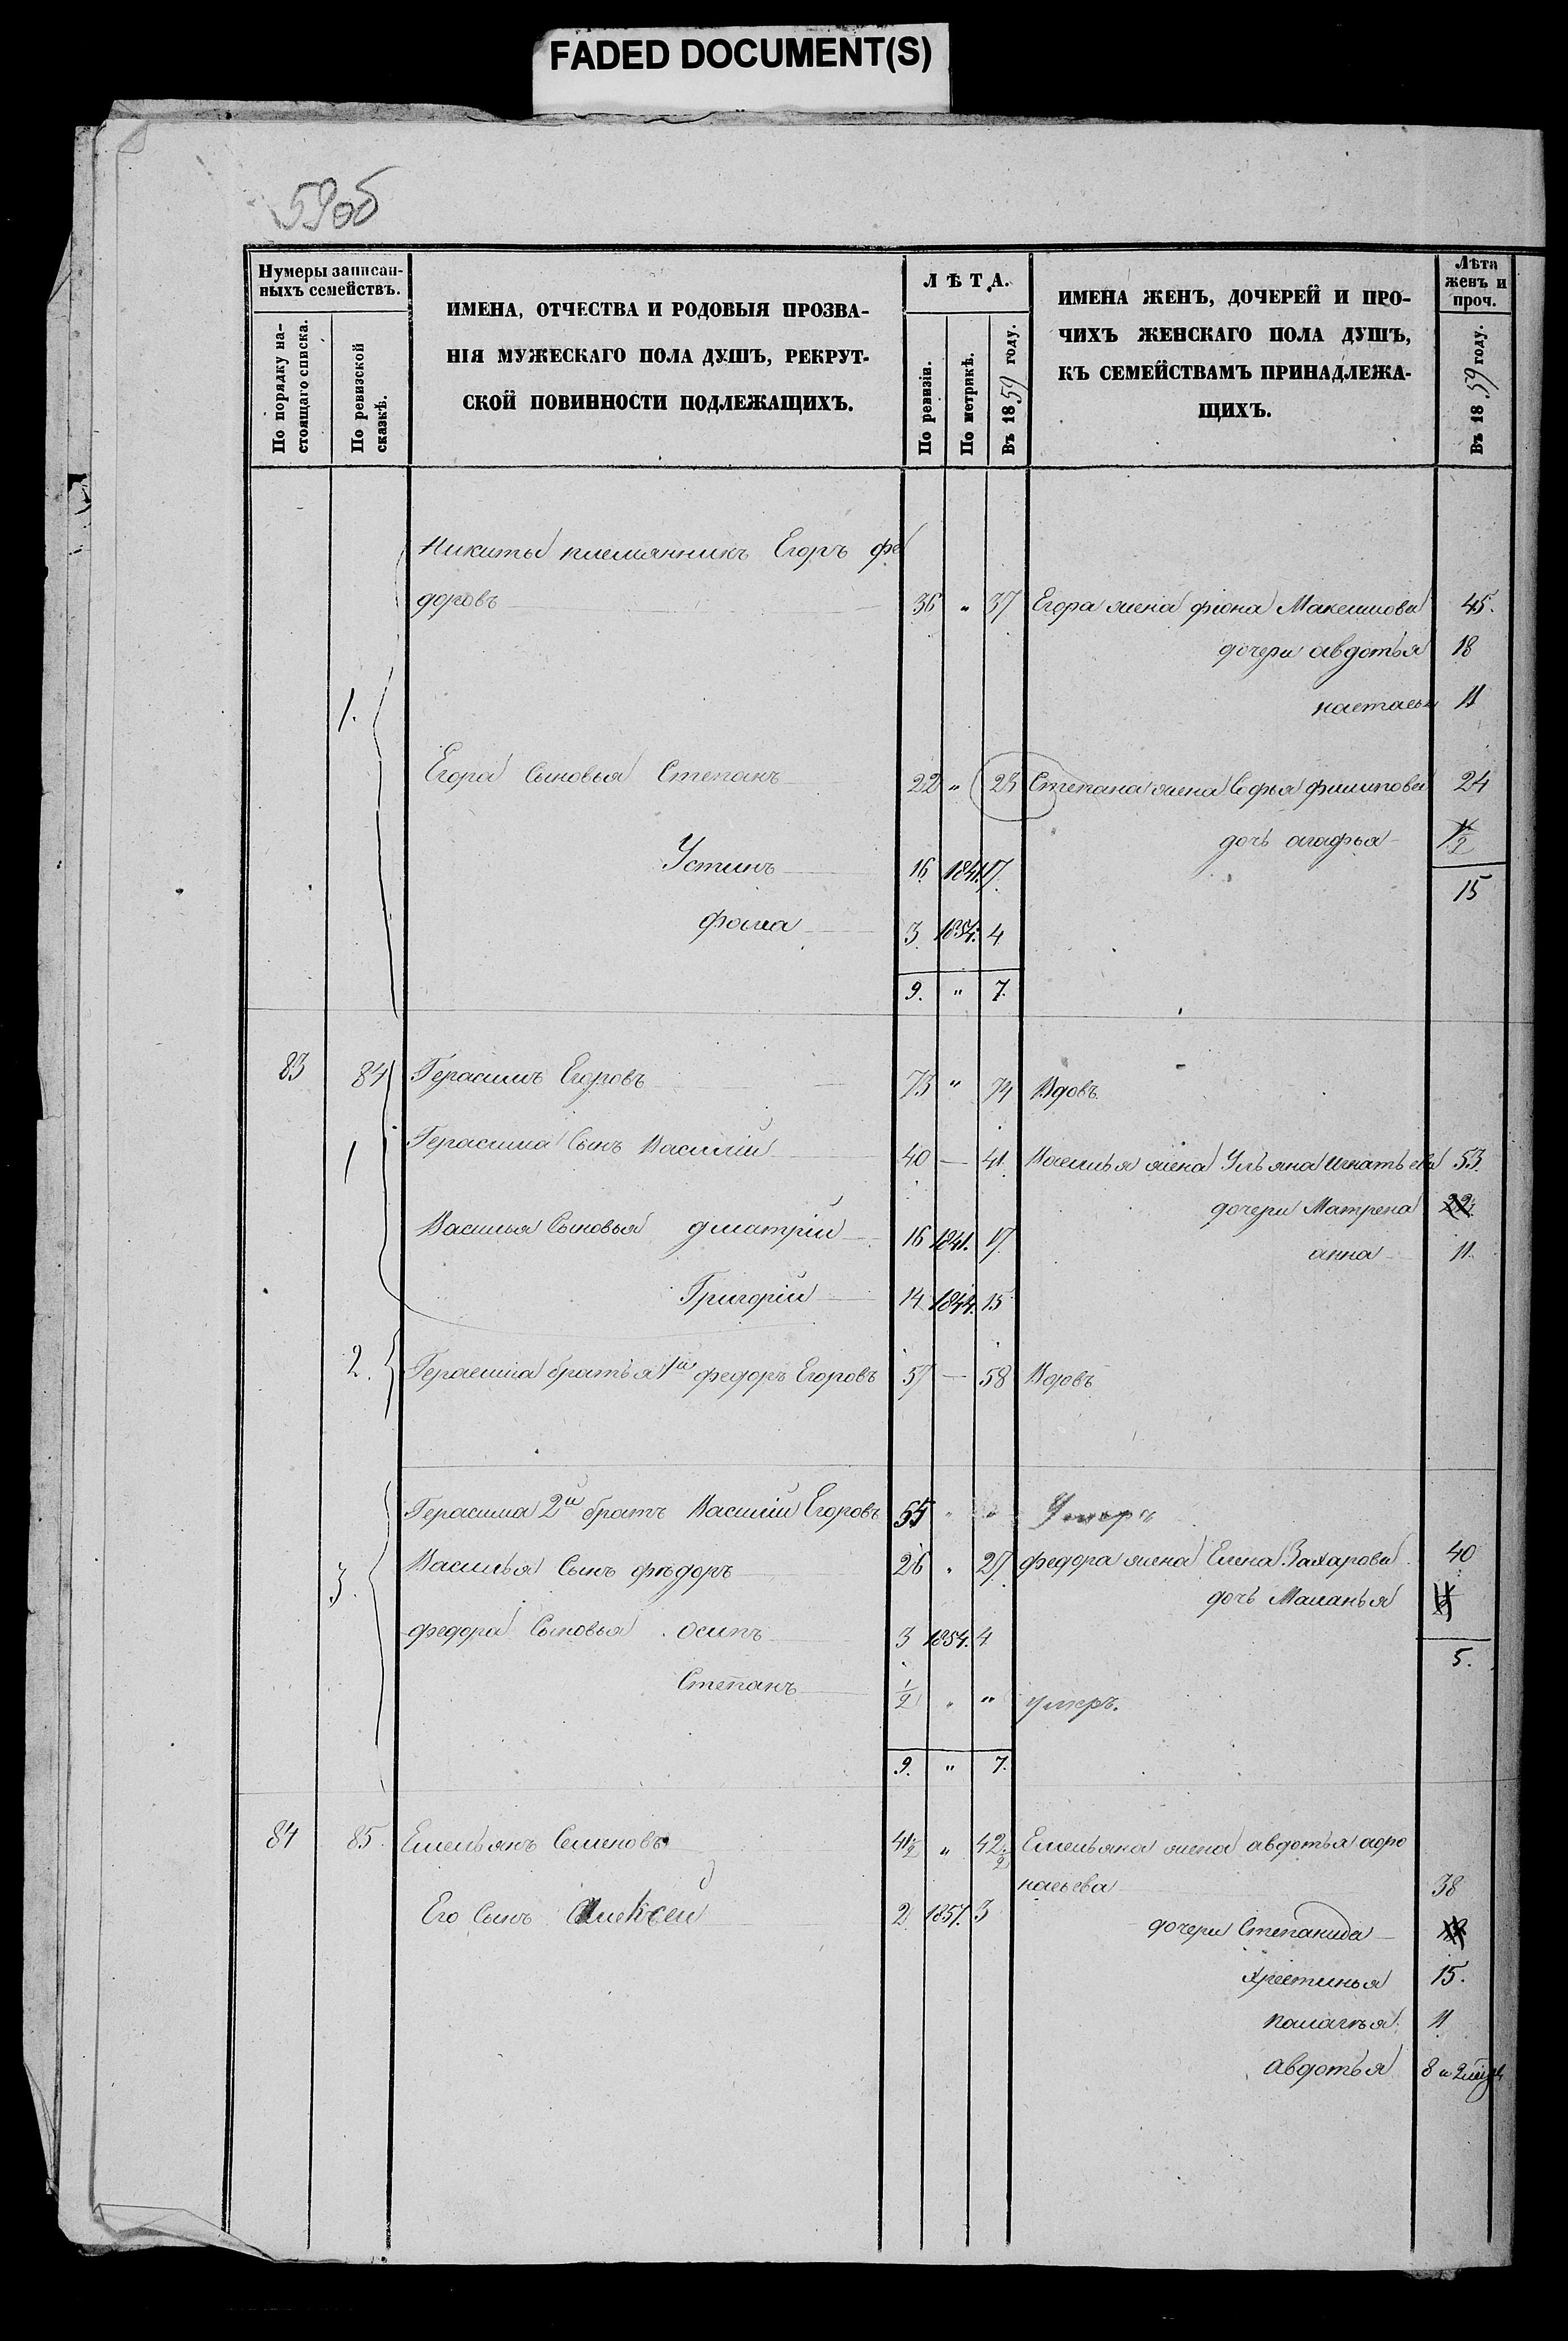 FADED DOCUMENT(S)
59об
Нумеры записан-
ныхъ семействъ.
По порядку на-
стоящаго списка.
По ревизской
сказкѣ.
ИМЕНА, ОТЧЕСТВА И РОДОВЫЯ ПРОЗВА-
НІЯ МУЖЕСКАГО ПОЛА ДУШЪ, РЕКРУТ-
СКОЙ ПОВИННОСТИ ПОДЛЕЖАЩИХЪ.
ЛѢТА.
По ревизіи.
По метрикѣ.
Въ 1859 году.
ИМЕНА ЖЕНЪ, ДОЧЕРЕЙ И ПРО-
ЧИХЪ ЖЕНСКАГО ПОЛА ДУШЪ,
КЪ СЕМЕЙСТВАМЪ ПРИНАДЛЕЖА-
ЩИХЪ.
Лѣта
женъ и
проч.
Въ 1859 году.
Никиты племянникъ Егоръ фе
доровъ 36 " 37 Егора жена фіона Максимова 45.
дочери авдотья 18
настасья 11
1.
Егора Сыновья Степанъ 22 " 23 Степана жена Софья филипова 24
дочь агафья
Устинъ 16 1841. 17.
15
фома 3 1854. 4
9. " 7.
83 84 Герасимъ Егоровъ 73 " 74 Вдовъ
1 Герасима Сынъ Василій 40 — 41 Василья жена Ульяна игнатьева 53.
дочери Матрена 22
Василья Сыновья дмитрій 16 1841. 17
анна 11.
Григорій 14 1844. 15
2. Герасима братья 1й федоръ Егоровъ 57 — 58 Вдовъ
Герасима 2й братъ Василій Егоровъ 55 " " Умеръ
3. Василья Сынъ фѣдоръ 26 " 27 федора жена Елена Захарова 40
дочь Маланья
федора Сыновья осипъ 3 1854. 4
5.
Степанъ 1/2 " " умеръ.
9. " 7.
84 85. Емельянъ Семеновъ 41 1/2 " 42 1/2 Емельяна жена авдотья афо
насьева 38
Его Сынъ Алексей 2 1857. 3
дочери Степанида
Хрестинья 15.
палагѣя 11
авдотья 8 и 2 мѣся